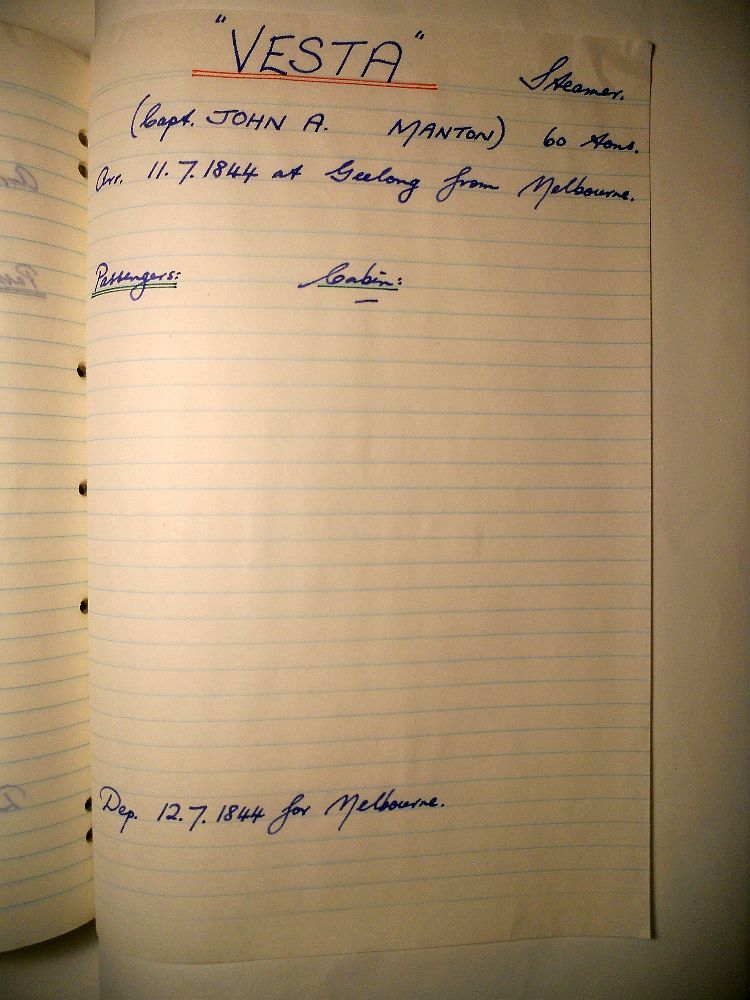 "VESTA" Steamer.
(Capt. JOHN A. MANTON) 60 tons.
Arr. 11.7.1844 at Geelong from Melbourne.
Passengers: Cabin:
—
Dep. 12.7.1844 for Melbourne.